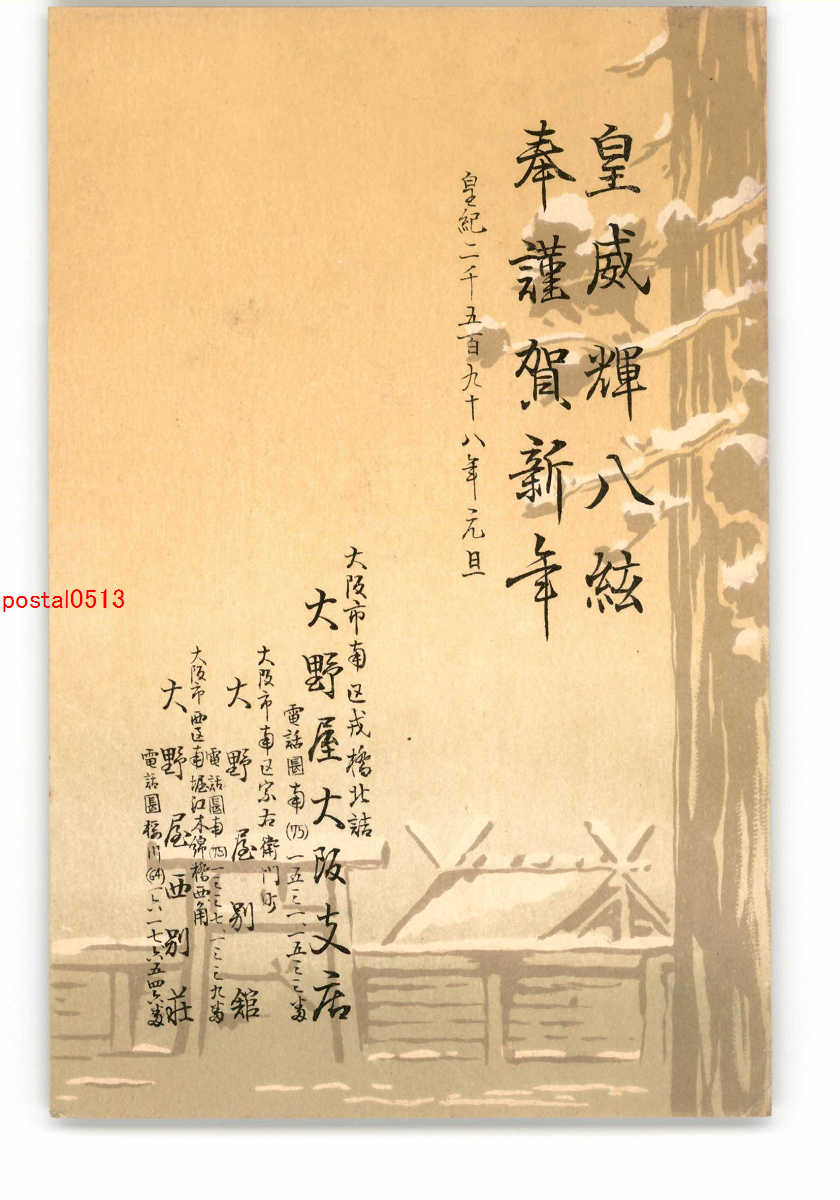 皇威輝八絃
奉謹賀新年
皇紀二千五百九十八年元旦
大阪市南区戎橋北詰
大野屋大阪支店
電話圏南(75)一五三一、一五三三番
大阪市南区宗右衛門町
大野屋別館
電話圏南(75)一三三七、一三三九番
大阪市西区南堀江木綿橋西角
大野屋西別荘
電話圏桜川(64)
postal0513